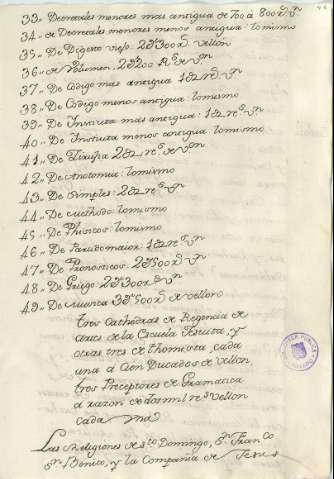 33,, Decretales menores mas antigua de 700 à 800 rs vn
34,, de Decretales menores menos antigua lomismo
35,, De Digesto viejo: 2U300 rs vellon
36,, de Volumen: 2U200 Rs de vn
37,, de Codigo mas antigua 1U rs vn
38,, De Codigo menos antigua: lomismo
39,, De Instituta mas antigua: 1U rs vn
40,, De Instituta menos antigua lomismo
41,, De Zirugia 2U rs de vn
42,, De Anotomia: lomismo
43,, de Simples: 2U rs vn
44,, de Methodo: lomismo
45,, de Phisicos: lomismo
46,, De Parudomaior: 1U rs vn
47,, De Pronosticos: 2U500 rs vn
48,, De Griego 2U300 rs vn
49,, De Musica 3U500 rs de vellon
tres Cathedras de Regencia de
artes de la Escuela Jesuita, y
otras tres de thomista, cada
una á Cien Ducados de Vellon
tres Preceptores de Gramatica
à razon de dosmil rs Vellon
cada una
Las Religiones de Sto Domingo, Sn Franco
Sn Benito, y la Compañia de Jesus